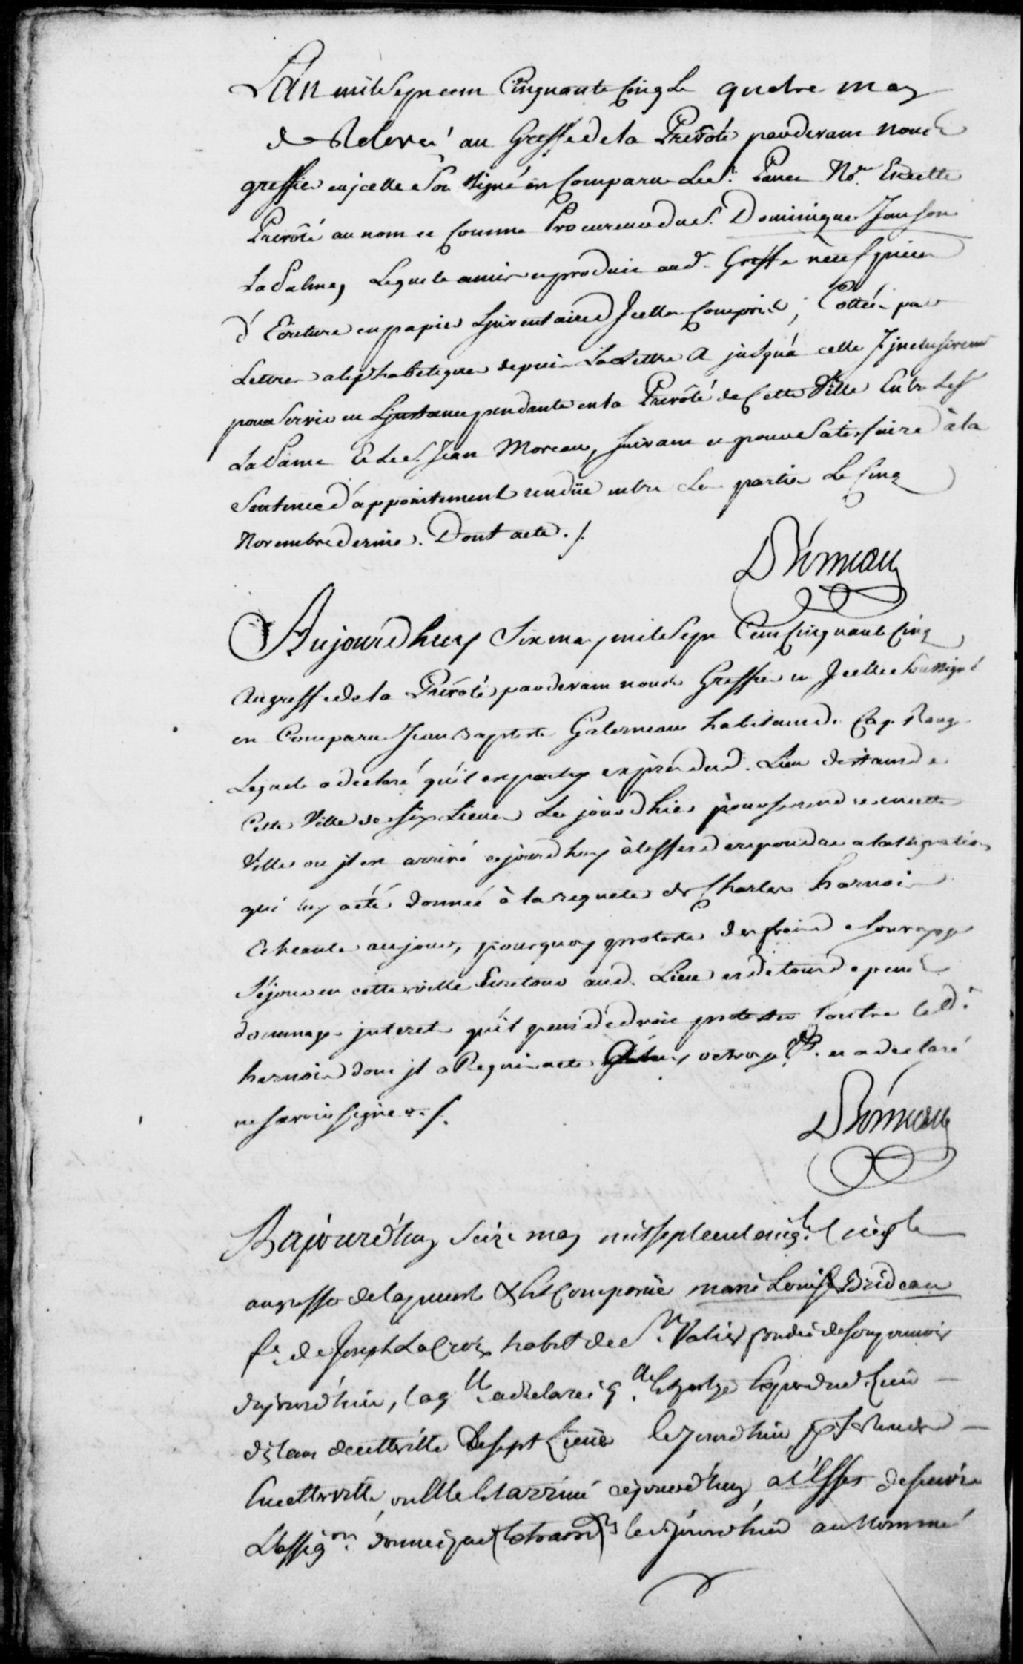 L'An mil Sept cent Cinquante Cinq le quatre may
de Relevé au Greffe de la Prévôté pardevant nous
greffier en jcelle Sou signé en Comparu Le Sr. Panet No.re En cette
Prevôté au nom et Comme Procureur du Sr. Dominique Janson
LaPalme, Lequel a mis et produit aud. Greffe neuf pieces
d'Ecriture en papier Linventaire d'Jcelle Compris, Cottées par
Lettres alephabetiques depuis La Lettre A jusqu'a celle J jnclusivement
pour Servir en Linstance pendante en la Prevôté de Cette Ville Entre Led. Sr
LaPalme Et Le Sr Jean Moreau, suivant et pour Satisfaire à la
Sentence d'appointement rendüe entre Les parties Le Cinq
Novembre dernier. Dont acte ./.
Aujourdhuy Six may mil Sept Cent Cinquante Cinq
Au greffe de la Prévôté pardevant nous Greffier en Jcelle Soussigné
en Comparu Jean Baptiste Galerneau habitant de Cap Rouge
Lequel a declaré qu'il est party exprès dud. Lieu distant de
Cette Ville de six Lieues Le jour d'hier pour se rendre en cette
Ville ou jl est arrivé cejourdhuy à leffet de repondre a l'assignation
qui luy a été donnée à la requete de Charles harnois
Echeante au jour, pourquoy proteste des frais de son voyage
Séjour en cette ville Et retour aud. Lieu et de tous depens
dommages jnterets qu'il peut et doit protester Contre led.
harnois dont jl a Requis acte octroyé et a declaré
ne Savoir signer ./.
Aujourd'huy Seize may mil sept cent cinq.te Cinq le
au greffe de la prevosté Est Comparüe marie Louise Brideau
fe. de Joseph LaCroix habit. de St. Valier fondée de son pouvoir
dujourd'huier, laq.lle a declaré q.lle Est partye Exprès dud. Lieu
distant de cette ville De sept Lieües le jourd'hier p.r se rendre
En cette ville ou Elle Est arrivée cejourd'huy a l'Effet de suivre
L'assig.on donnée par le jourd'hier au Nommé